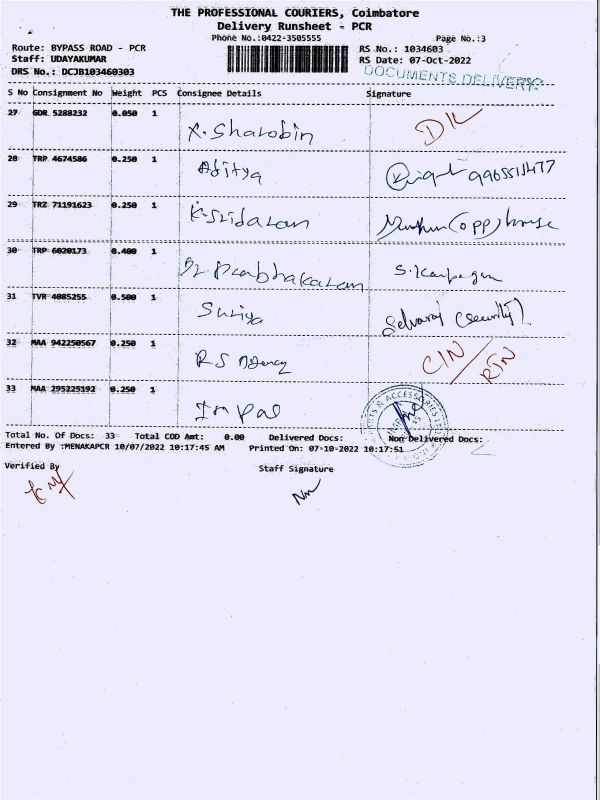 THE PROFESSIONAL COURIERS, Coimbatore
Delivery Runsheet - PCR
Phone No.:0422-3505555 Page No.:3
Route: BYPASS ROAD - PCR RS No.: 1034603
Staff: UDAYAKUMAR RS Date: 07-Oct-2022
DRS No.: DCJB103460303 DOCUMENTS DELIVERY
S No Consignment No Weight PCS Consignee Details Signature
27 GDR 5288232 0.050 1 X. Sharobin DL
28 TRP 4674586 0.250 1 Aditya
29 TRZ 71191623 0.250 1 K. Sridaran (opp) house
30 TRP 6020173 0.400 1 Prabhakaran S. Karpagam
31 TVR 4085255 0.500 1 Suriya Selvaraj (Security)
32 MAA 942250567 0.250 1 R S Agency CIN/RTN
33 MAA 295225192 0.250 1 Impal
Total No. Of Docs: 33 Total COD Amt: 0.00 Delivered Docs: Non Delivered Docs:
Entered By :MENAKAPCR 10/07/2022 10:17:45 AM Printed On: 07-10-2022 10:17:51
Verified By Staff Signature